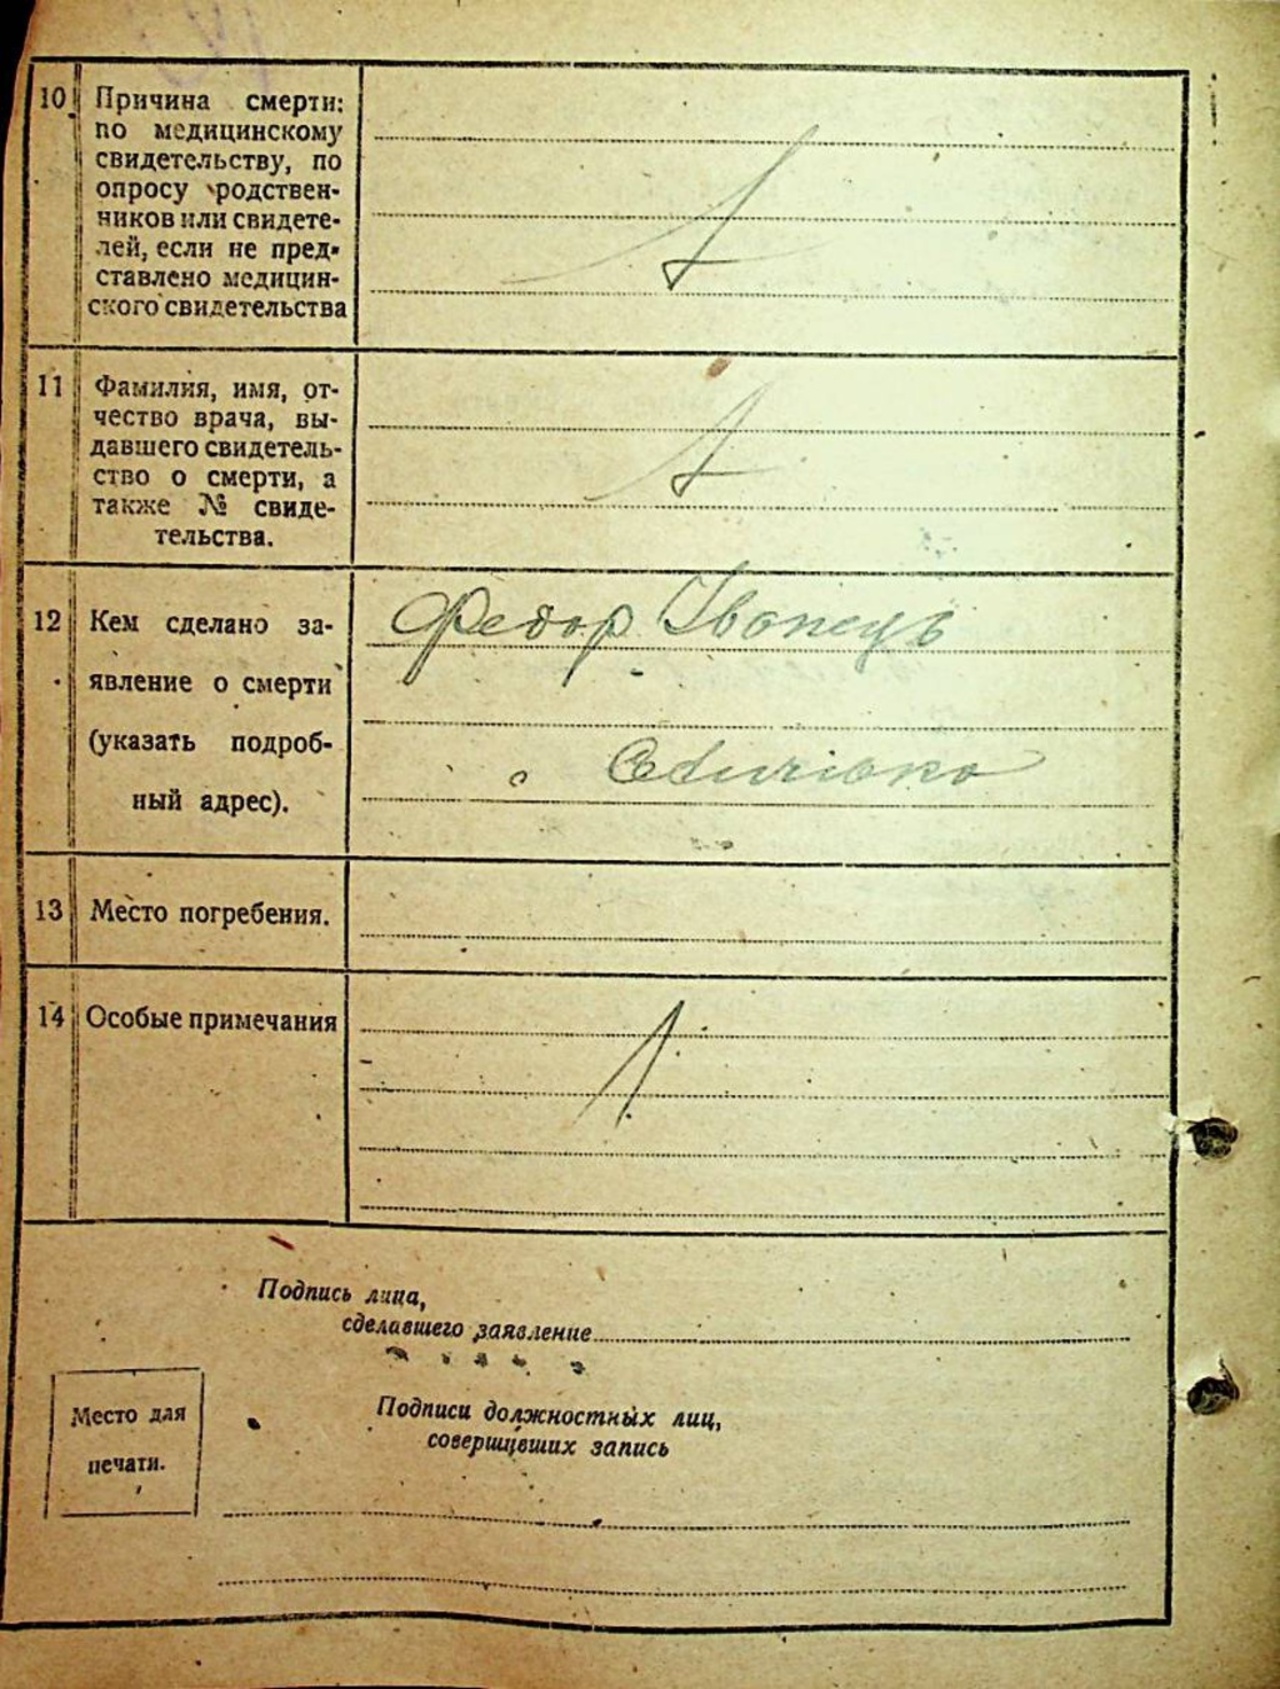 10 Причина смерти:
по медицинскому
свидетельству, по
опросу родствен-
ников или свидете-
лей, если не пред-
ставлено медицин-
ского свидетельства
11 Фамилия, имя, от-
чество врача, вы-
давшего свидетель-
ство о смерти, а
также № свиде-
тельства.
12 Кем сделано за-
явление о смерти
(указать подроб-
ный адрес).
Федор Іванець
с
13 Место погребения.
14 Особые примечания
Подпись лица,
сделавшего заявление
Подписи должностных лиц,
совершивших запись
Место для
печати.